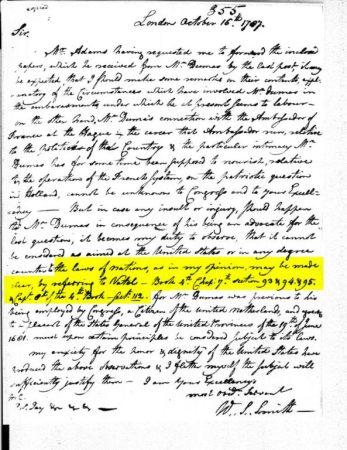 copied
355
London October 16th 1787.
Sir.
Mr. Adams having requested me to forward the inclosed
papers, which he received from Mr Dumas by the last post, it may
be expected, that I should make some remarks on their contents, expla-
natory of the Circumstances which have involved Mr Dumas in
the embarrassments under which he at present seems to labour—
on the other hand, Mr Dumas's connection with the Ambassador of
France at the Hague in the career that Ambassador run, relative
to the Politicks of the Country & the particular intimacy Mr
Dumas has for some time been supposed to nourish, relative
to the operations of the French System, on the patriotic question
in Holland, cannot be unknown to Congress and to your Excel-
lency — But in case any insult or injury, should happen
to Mr Dumas in consequence of his being an advocate for the
lost question, it becomes my duty to observe, that it cannot
be considered as aimed at the United States or in any degree
counter to the laws of nations, as in my opinion, may be made
clear, by referring to Vattel — Book 4th Chap. 7th Section 93 & 94 & 95.
& Capt. 8th of the 4th Book Sect 112. for Mr Dumas was previous to his
being employed by Congress, a Citizen of the United Netherland, and
to a placart of the States General of the United Provinces of the 19th of June
1681. must upon certain principles be considered subject to its laws.
my anxiety for the honor & dignity of the United States have
produced the above observations & I flatter myself the subject will
sufficiently justify them — I am Your Excellency's
most obdt. Servant
W. S. Smith
J. Jay